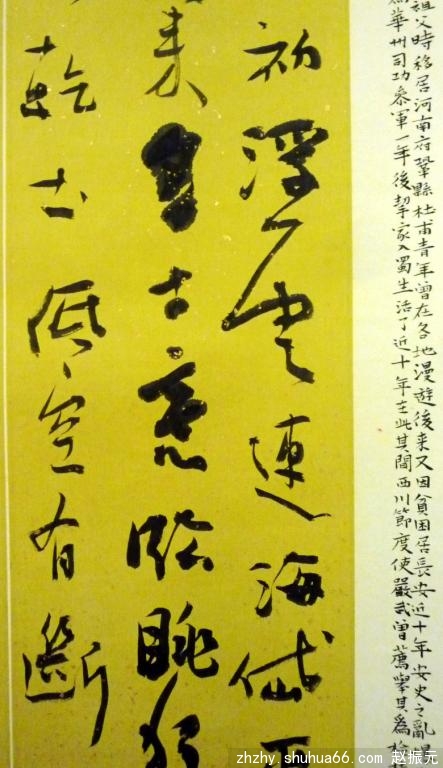 祖父時移居河南府鞏縣杜甫青年曾在各地漫遊後来又因貧困居長安近十年安史之亂
為華州司功參軍一年後挈家入蜀生活了近十年在此其間西川節度使嚴武曾薦舉其為檢
初浮雲連海岱平
来多古意臨眺獨
乾土低空有斷
zhzhy.shuhua66.com 赵振元